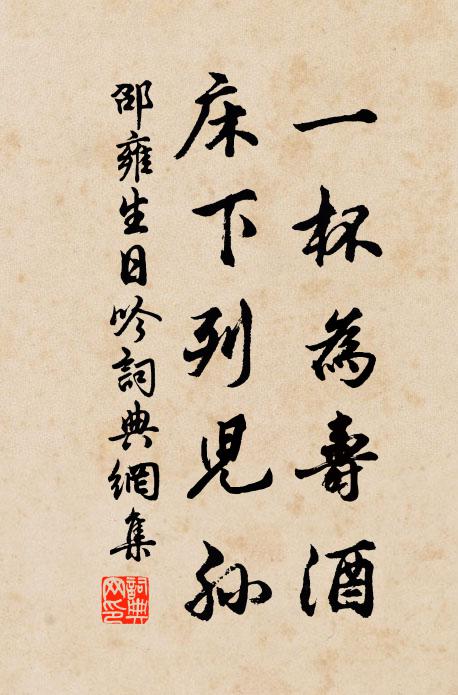 一杯為壽酒
床下列兒孫
邵雍生日吟詞典網集
詞典
网印